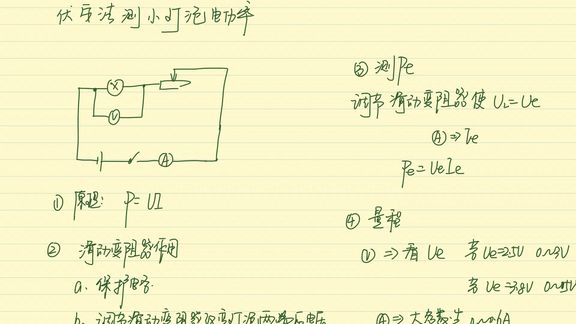 伏安法测小灯泡电功率
① 原理: P=UI
② 滑动变阻器作用
a. 保护电路
b. 调节滑动变阻器改变灯泡两端电压
③ 测Pe
调节滑动变阻器使UL=Ue
Ⓐ⇒Ie
Pe=UeIe
④ 量程
Ⓥ⇒看Ue 若Ue=2.5V 0~3V
若Ue=3.8V 0~15V
Ⓐ⇒大多数为 0~0.6A